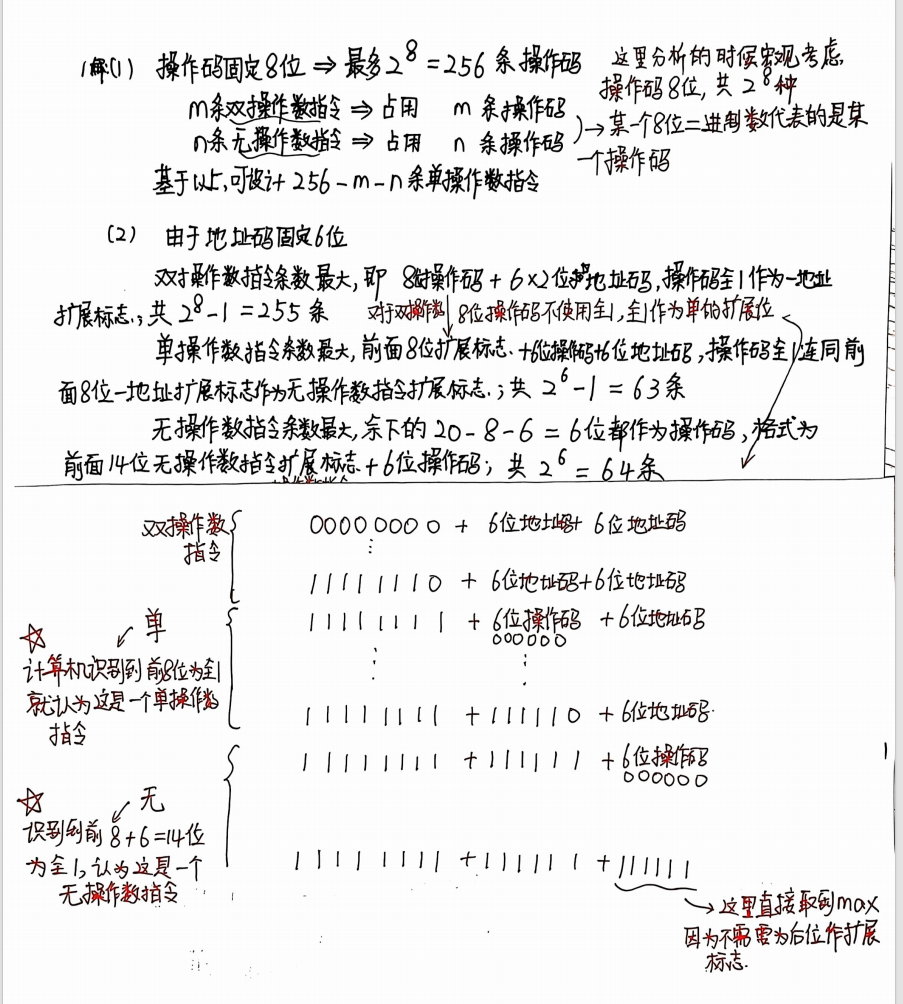 1解(1) 操作码固定8位 ⇒ 最多2⁸ = 256 条操作码
这里分析的时候宏观考虑
操作码8位, 共 2⁸ 种
m条双操作数指令 ⇒ 占用 m 条操作码
n条无操作数指令 ⇒ 占用 n 条操作码
→ 某一个8位二进制数代表的是某
一个操作码
基于以上, 可设计 256 - m - n 条单操作数指令
(2) 由于地址码固定6位
双操作数指令条数最大, 即 8位操作码 + 6×2位地址码, 操作码全1作为一地址
扩展标志.; 共 2⁸ - 1 = 255 条
对于双操作数 8位操作码不使用全1, 全1作为单的扩展位
单操作数指令条数最大, 前面8位扩展标志. +6位操作码+6位地址码, 操作码全1连同前
面8位一地址扩展标志作为无操作数指令扩展标志.; 共 2⁶ - 1 = 63条
无操作数指令条数最大, 余下的 20 - 8 - 6 = 6位都作为操作码, 格式为
前面14位无操作数指令扩展标志 + 6位操作码; 共 2⁶ = 64条
双操作数
指令
00000000 + 6位地址码+ 6位地址码
⋮
11111110 + 6位地址码+6位地址码
11111111 + 6位操作码 +6位地址码
000000
☆ 单
计算机识别到前8位为全1
就认为这是一个单操作数
指令
⋮ ⋮
11111111 +111110 +6位地址码.
11111111 +111111 +6位操作码
000000
☆ 无
识别到前8+6=14位
为全1, 认为这是一个
无操作数指令
11111111 +111111 +111111
→ 这里直接取到max
因为不需要为后位作扩展
标志.